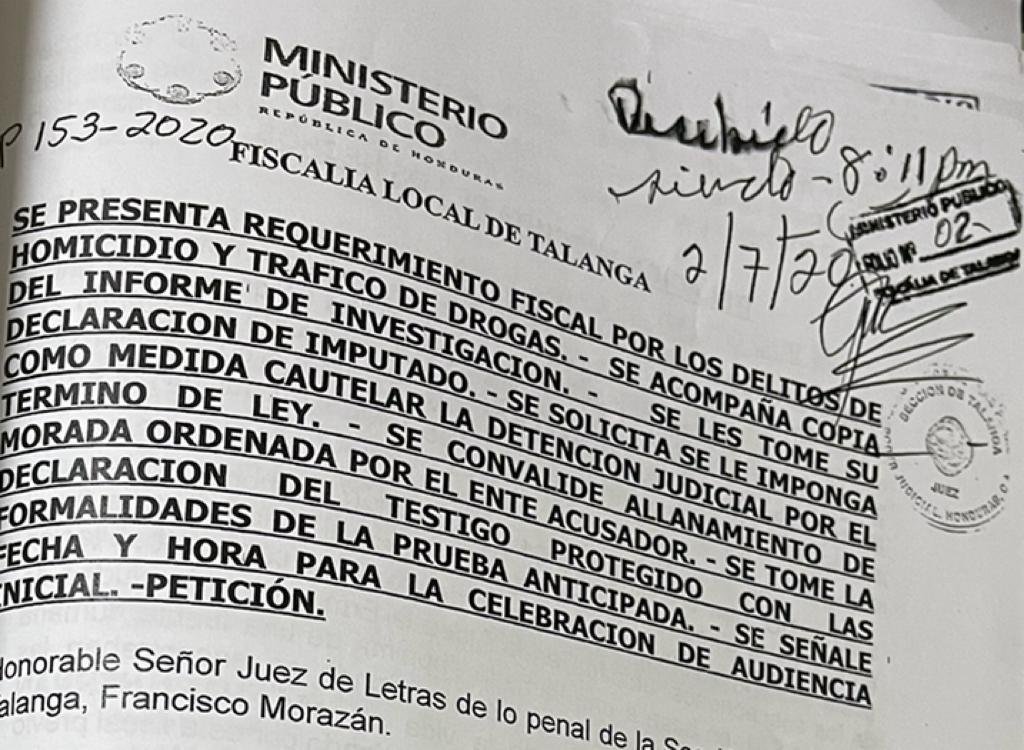 MINISTERIO
PÚBLICO
REPÚBLICA DE HONDURAS
P 153-2020
FISCALIA LOCAL DE TALANGA
8:11 pm
2/7/20
MINISTERIO PUBLICO
FOLIO Nº 02
FISCALIA DE TALANGA
SE PRESENTA REQUERIMIENTO FISCAL POR LOS DELITOS DE
HOMICIDIO Y TRAFICO DE DROGAS. - SE ACOMPAÑA COPIA
DEL INFORME DE INVESTIGACION. - SE LES TOME SU
DECLARACION DE IMPUTADO. - SE SOLICITA SE LE IMPONGA
COMO MEDIDA CAUTELAR LA DETENCION JUDICIAL POR EL
TERMINO DE LEY. - SE CONVALIDE ALLANAMIENTO DE
MORADA ORDENADA POR EL ENTE ACUSADOR. - SE TOME LA
DECLARACION DEL TESTIGO PROTEGIDO CON LAS
FORMALIDADES DE LA PRUEBA ANTICIPADA. - SE SEÑALE
FECHA Y HORA PARA LA CELEBRACION DE AUDIENCIA
INICIAL. -PETICIÓN.
SECCION DE TALANGA
JUEZ
JUDICIAL, HONDURAS, C A
Honorable Señor Juez de Letras de lo penal de la
Talanga, Francisco Morazán.